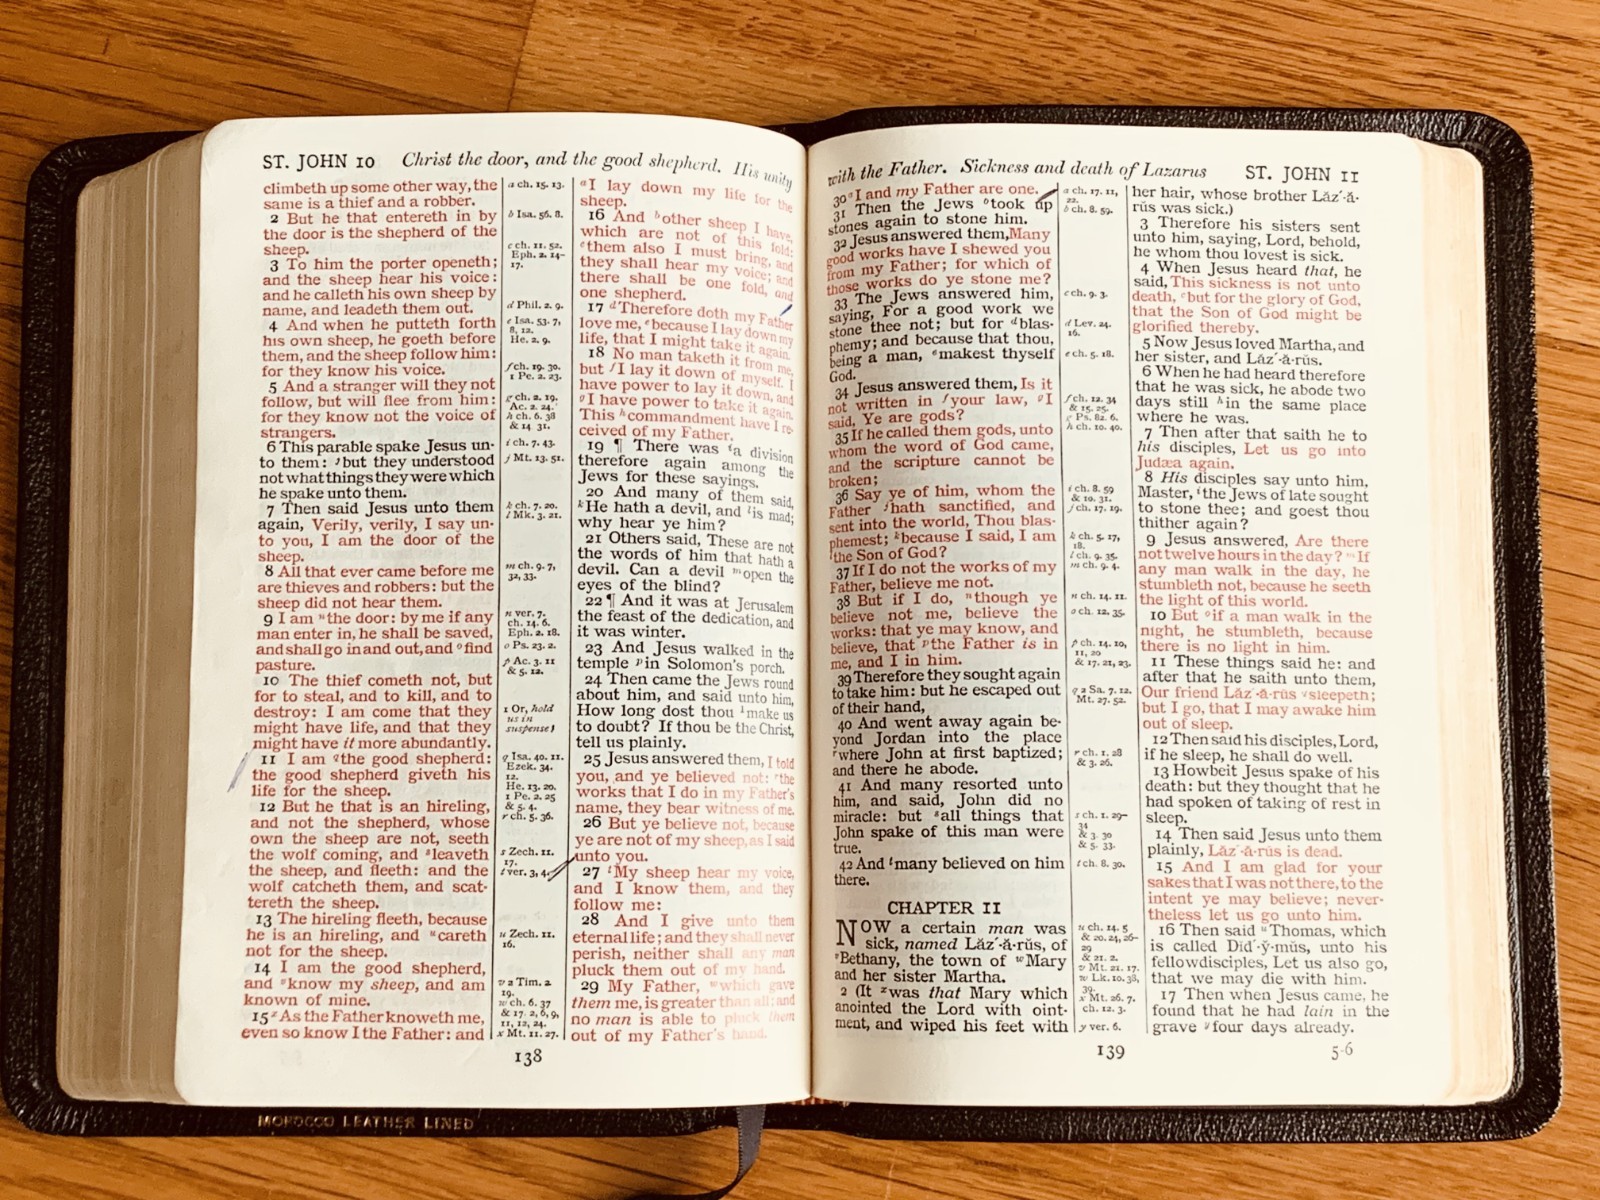 ST. JOHN 10 Christ the door, and the good shepherd. His unity
climbeth up some other way, the
same is a thief and a robber.
2 But he that entereth in by
the door is the shepherd of the
sheep.
3 To him the porter openeth;
and the sheep hear his voice:
and he calleth his own sheep by
name, and leadeth them out.
4 And when he putteth forth
his own sheep, he goeth before
them, and the sheep follow him:
for they know his voice.
5 And a stranger will they not
follow, but will flee from him:
for they know not the voice of
strangers.
6 This parable spake Jesus un-
to them: j but they understood
not what things they were which
he spake unto them.
7 Then said Jesus unto them
again, Verily, verily, I say un-
to you, I am the door of the
sheep.
8 All that ever came before me
are thieves and robbers: but the
sheep did not hear them.
9 I am n the door: by me if any
man enter in, he shall be saved,
and shall go in and out, and o find
pasture.
10 The thief cometh not, but
for to steal, and to kill, and to
destroy: I am come that they
might have life, and that they
might have it more abundantly.
11 I am q the good shepherd:
the good shepherd giveth his
life for the sheep.
12 But he that is an hireling,
and not the shepherd, whose
own the sheep are not, seeth
the wolf coming, and s leaveth
the sheep, and fleeth: and the
wolf catcheth them, and scat-
tereth the sheep.
13 The hireling fleeth, because
he is an hireling, and u careth
not for the sheep.
14 I am the good shepherd,
and v know my sheep, and am
known of mine.
15 x As the Father knoweth me,
even so know I the Father: and
a ch. 15. 13.
b Isa. 56. 8.
c ch. 11. 52.
Eph. 2. 14-
17.
d Phil. 2. 9.
e Isa. 53. 7,
8, 12.
He. 2. 9.
f ch. 19. 30.
1 Pe. 2. 23.
g ch. 2. 19.
Ac. 2. 24.
h ch. 6. 38
& 14. 31.
i ch. 7. 43.
j Mt. 13. 51.
k ch. 7. 20.
l Mk. 3. 21.
m ch. 9. 7,
32, 33.
n ver. 7.
ch. 14. 6.
Eph. 2. 18.
o Ps. 23. 2.
p Ac. 3. 11
& 5. 12.
1 Or, hold
us in
suspense?
q Isa. 40. 11.
Ezek. 34.
12.
He. 13. 20.
1 Pe. 2. 25
& 5. 4.
r ch. 5. 36.
s Zech. 11.
17.
t ver. 3, 4.
u Zech. 11.
16.
v 2 Tim. 2
19.
w ch. 6. 37
& 17. 2, 6, 9,
11, 12, 24.
x Mt. 11. 27.
a I lay down my life for the
sheep.
16 And b other sheep I have,
which are not of this fold:
c them also I must bring, and
they shall hear my voice; and
there shall be one fold, and
one shepherd.
17 d Therefore doth my Father
love me, e because I lay down my
life, that I might take it again.
18 No man taketh it from me,
but f I lay it down of myself. I
have power to lay it down, and
g I have power to take it again.
This h commandment have I re-
ceived of my Father.
19 ¶ There was i a division
therefore again among the
Jews for these sayings.
20 And many of them said,
k He hath a devil, and l is mad;
why hear ye him?
21 Others said, These are not
the words of him that hath a
devil. Can a devil m open the
eyes of the blind?
22 ¶ And it was at Jerusalem
the feast of the dedication, and
it was winter.
23 And Jesus walked in the
temple p in Solomon's porch.
24 Then came the Jews round
about him, and said unto him,
How long dost thou 1 make us
to doubt? If thou be the Christ,
tell us plainly.
25 Jesus answered them, I told
you, and ye believed not: r the
works that I do in my Father's
name, they bear witness of me.
26 But ye believe not, because
ye are not of my sheep, as I said
unto you.
27 t My sheep hear my voice,
and I know them, and they
follow me:
28 And I give unto them
eternal life; and they shall never
perish, neither shall any man
pluck them out of my hand.
29 My Father, w which gave
them me, is greater than all; and
no man is able to pluck them
out of my Father's hand.
138
with the Father. Sickness and death of Lazarus ST. JOHN 11
30 a I and my Father are one.
31 Then the Jews b took up
stones again to stone him.
32 Jesus answered them, Many
good works have I shewed you
from my Father; for which of
those works do ye stone me?
33 The Jews answered him,
saying, For a good work we
stone thee not; but for d blas-
phemy; and because that thou,
being a man, e makest thyself
God.
34 Jesus answered them, Is it
not written in f your law, g I
said, Ye are gods?
35 If he called them gods, unto
whom the word of God came,
and the scripture cannot be
broken;
36 Say ye of him, whom the
Father j hath sanctified, and
sent into the world, Thou blas-
phemest; k because I said, I am
l the Son of God?
37 If I do not the works of my
Father, believe me not.
38 But if I do, n though ye
believe not me, believe the
works: that ye may know, and
believe, that p the Father is in
me, and I in him.
39 Therefore they sought again
to take him: but he escaped out
of their hand,
40 And went away again be-
yond Jordan into the place
r where John at first baptized;
and there he abode.
41 And many resorted unto
him, and said, John did no
miracle: but s all things that
John spake of this man were
true.
42 And t many believed on him
there.
CHAPTER 11
NOW a certain man was
sick, named Lăz´·ă·rŭs, of
v Bethany, the town of w Mary
and her sister Martha.
2 (It x was that Mary which
anointed the Lord with oint-
ment, and wiped his feet with
a ch. 17. 11,
22.
b ch. 8. 59.
c ch. 9. 3.
d Lev. 24.
16.
e ch. 5. 18.
f ch. 12. 34
& 15. 25.
g Ps. 82. 6.
h ch. 10. 40.
i ch. 8. 59
& 10. 31.
j ch. 17. 19.
k ch. 5. 17,
18.
l ch. 9. 35.
m ch. 9. 4.
n ch. 14. 11.
o ch. 12. 35.
p ch. 14. 10,
11, 20
& 17. 21, 23.
q 2 Sa. 7. 12.
Mt. 27. 52.
r ch. 1. 28
& 3. 26.
s ch. 1. 29-
34
& 3. 30
& 5. 33.
t ch. 8. 30.
u ch. 14. 5
& 20. 24, 26-
29
& 21. 2.
v Mt. 21. 17.
w Lk. 10. 38,
39.
x Mt. 26. 7.
ch. 12. 3.
y ver. 6.
her hair, whose brother Lăz´·ă·
rŭs was sick.)
3 Therefore his sisters sent
unto him, saying, Lord, behold,
he whom thou lovest is sick.
4 When Jesus heard that, he
said, This sickness is not unto
death, c but for the glory of God,
that the Son of God might be
glorified thereby.
5 Now Jesus loved Martha, and
her sister, and Lăz´·ă·rŭs.
6 When he had heard therefore
that he was sick, he abode two
days still h in the same place
where he was.
7 Then after that saith he to
his disciples, Let us go into
Judæa again.
8 His disciples say unto him,
Master, i the Jews of late sought
to stone thee; and goest thou
thither again?
9 Jesus answered, Are there
not twelve hours in the day? m If
any man walk in the day, he
stumbleth not, because he seeth
the light of this world.
10 But o if a man walk in the
night, he stumbleth, because
there is no light in him.
11 These things said he: and
after that he saith unto them,
Our friend Lăz´·ă·rŭs q sleepeth;
but I go, that I may awake him
out of sleep.
12 Then said his disciples, Lord,
if he sleep, he shall do well.
13 Howbeit Jesus spake of his
death: but they thought that he
had spoken of taking of rest in
sleep.
14 Then said Jesus unto them
plainly, Lăz´·ă·rŭs is dead.
15 And I am glad for your
sakes that I was not there, to the
intent ye may believe; never-
theless let us go unto him.
16 Then said u Thomas, which
is called Dĭd´·ў·mŭs, unto his
fellowdisciples, Let us also go,
that we may die with him.
17 Then when Jesus came, he
found that he had lain in the
grave y four days already.
139
5-6
MOROCCO LEATHER LINED